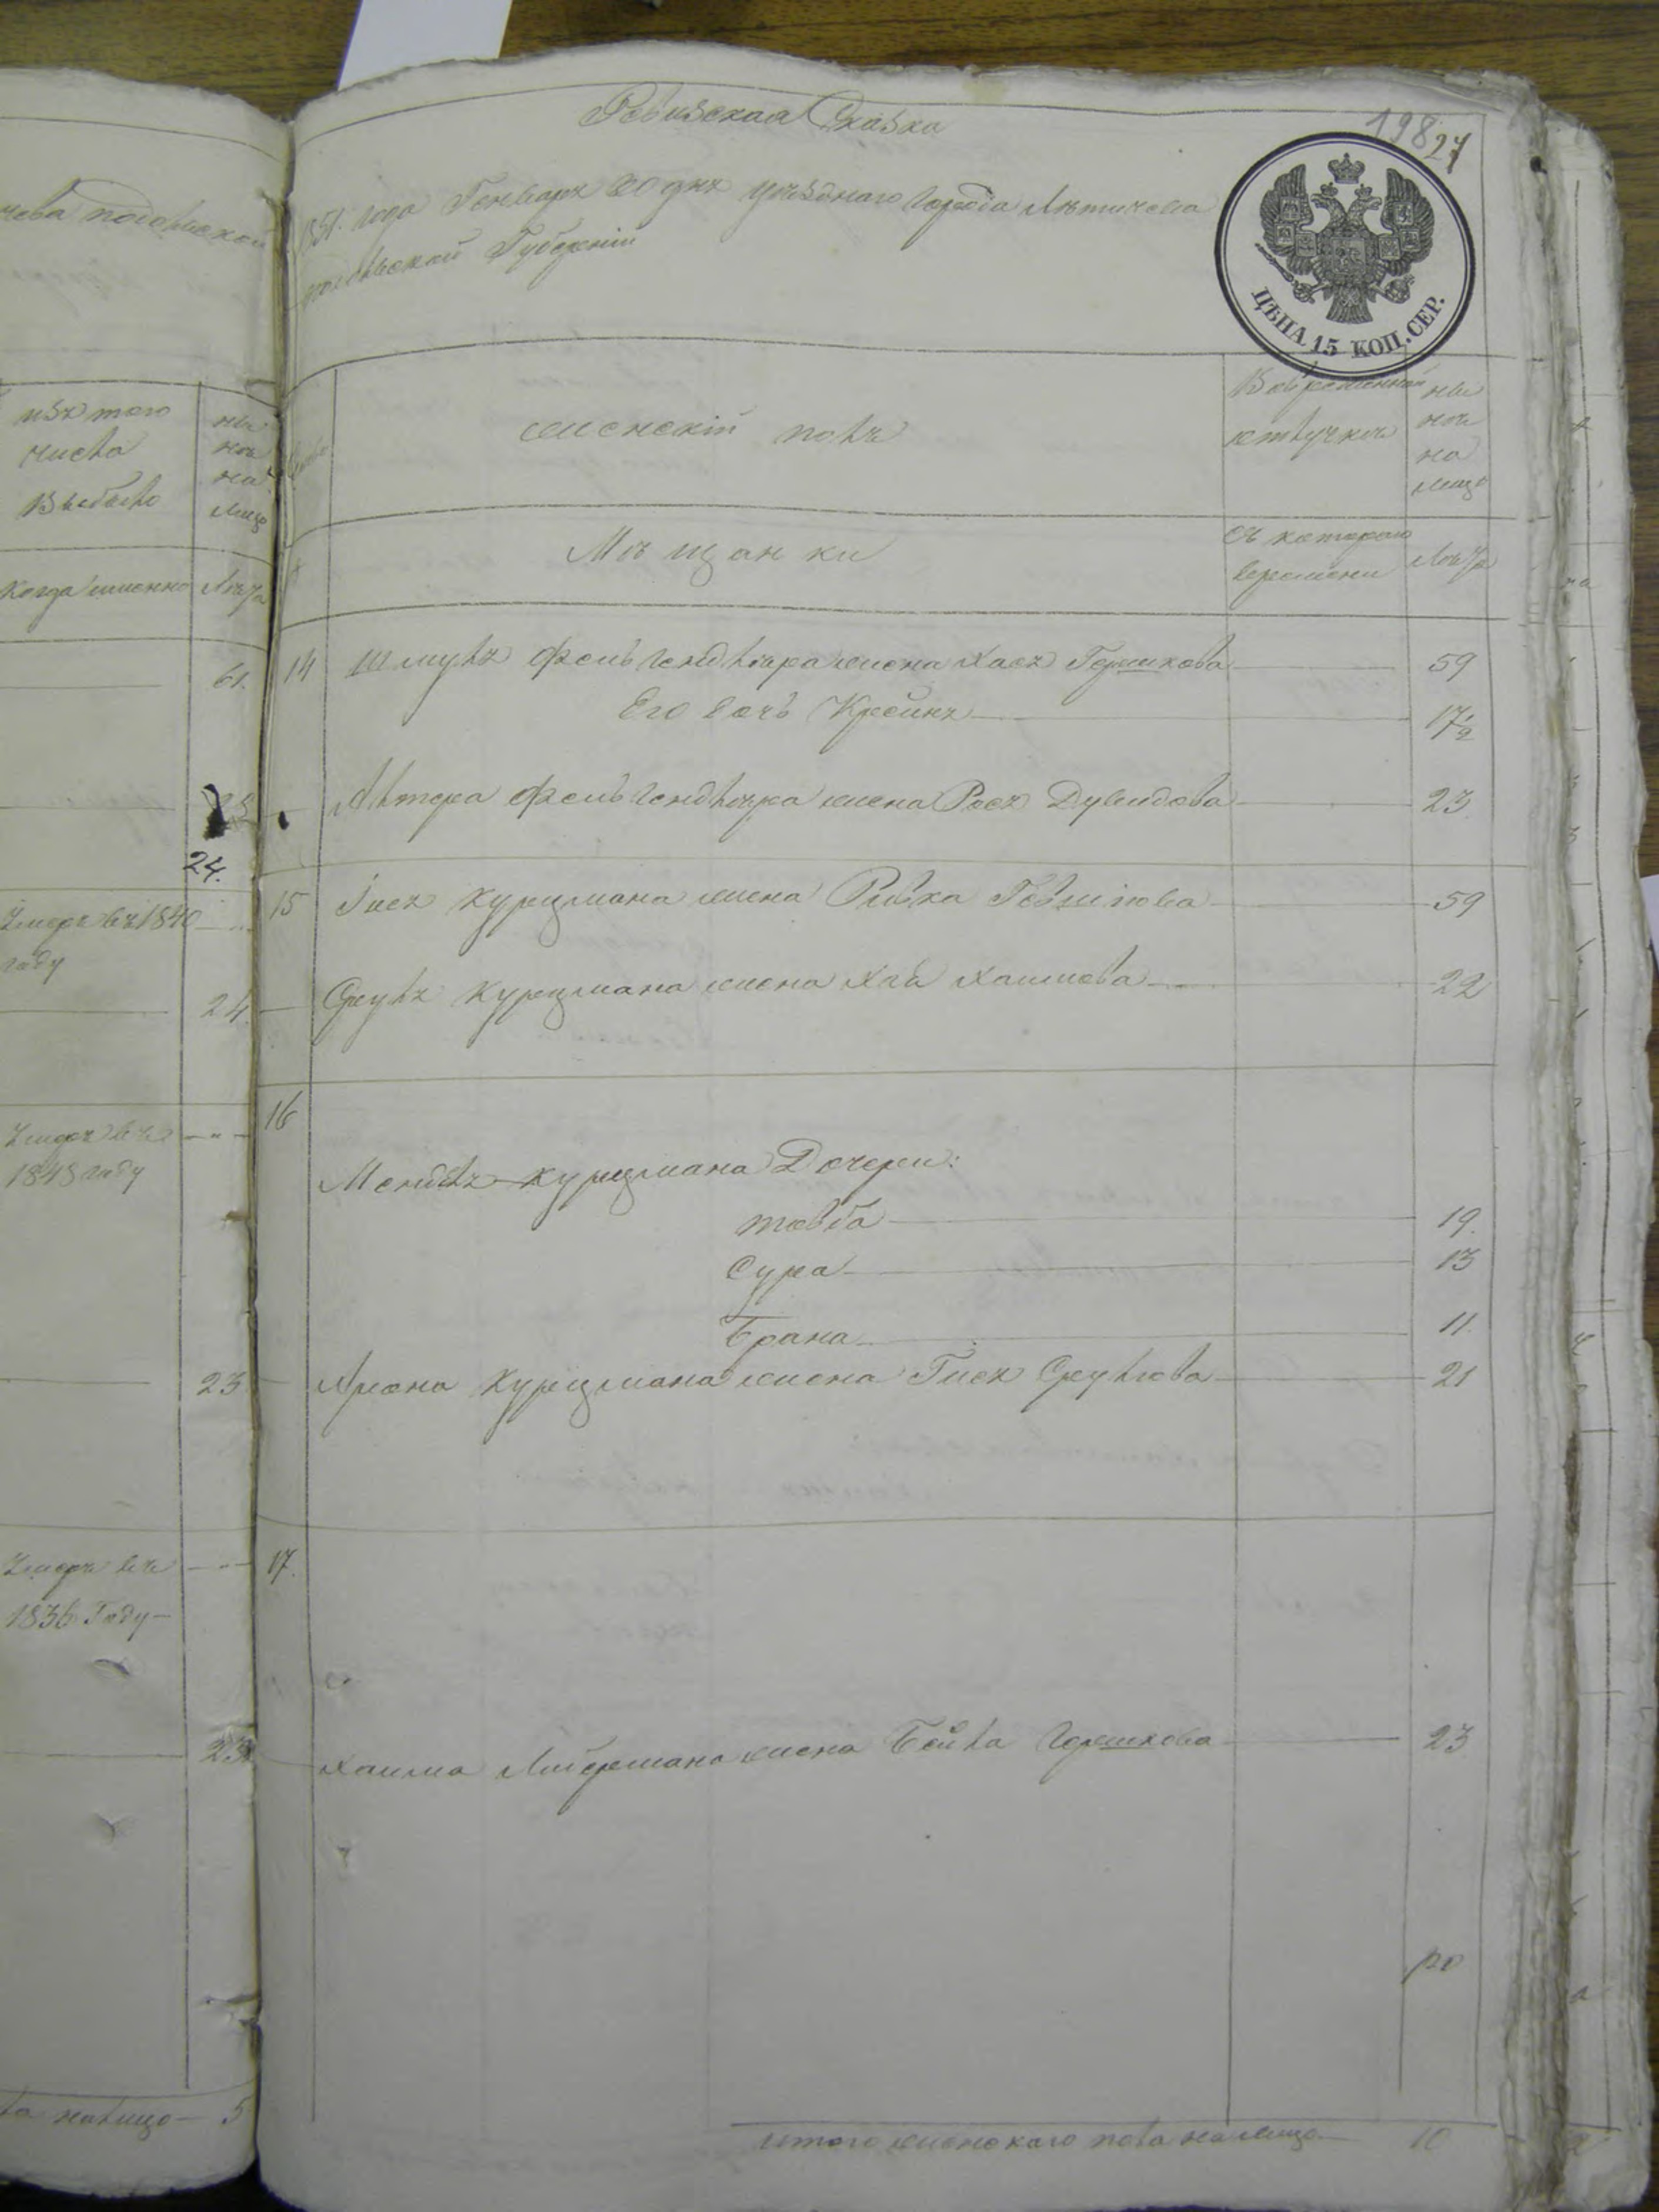 чева подольской
изъ того
числа
выбыло
ны
нѣ
на
лицо
когда именно
лѣта
61.
24.
умеръ въ 1840
году
24
умеръ въ
1848 году
23
умеръ въ
1836 Году
23
налицо 5
Ревизская Сказка
198 27
1851 года Генваря 20 дня уѣзднаго города Лѣтичева
подольской Губерніи
ЦѢНА 15 КОП. СЕР.
женскій полъ
Во временной
отлучкѣ
ны
нѣ
на
лицо
Мѣщанки
съ котораго
времени
Лѣта
14 Шмуля Фельдендлера жена Хая Гершкова 59
Его дочь Крейня 17 1/2
Альтера жена Рося Дувидова 23
15 Куцмана жена Ривка 59
Сруля Куцмана жена Хая Хаимова 22
16
Менделя Дочери:
товба 19.
Сура 13
Брана 11.
Арона жена Гися Срулева 21
17.
Хаима Либермана жена Бейла Гершкова 23
итого женскаго пола налицо 10